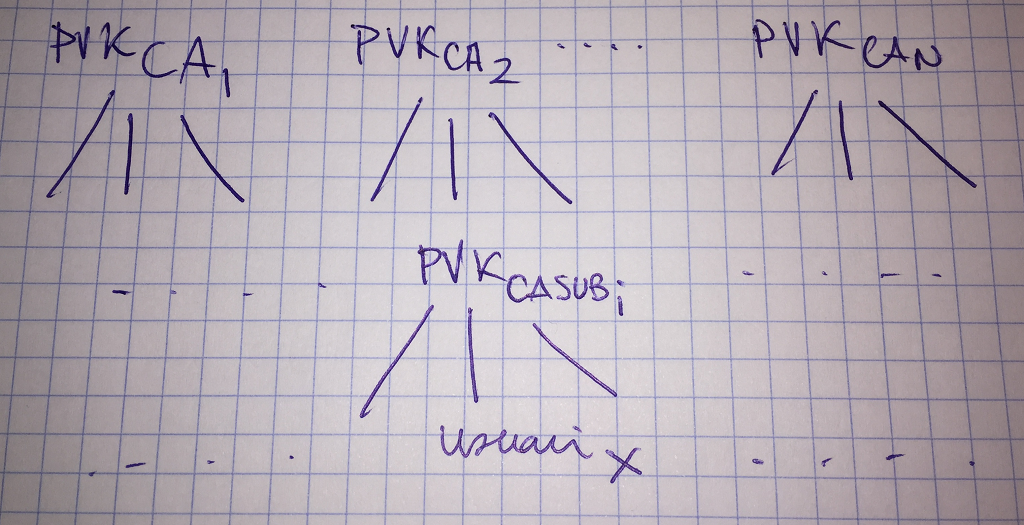 PVK CA1 PVK CA2 ..... PVK CAN
PVK CASUBi
usuari x